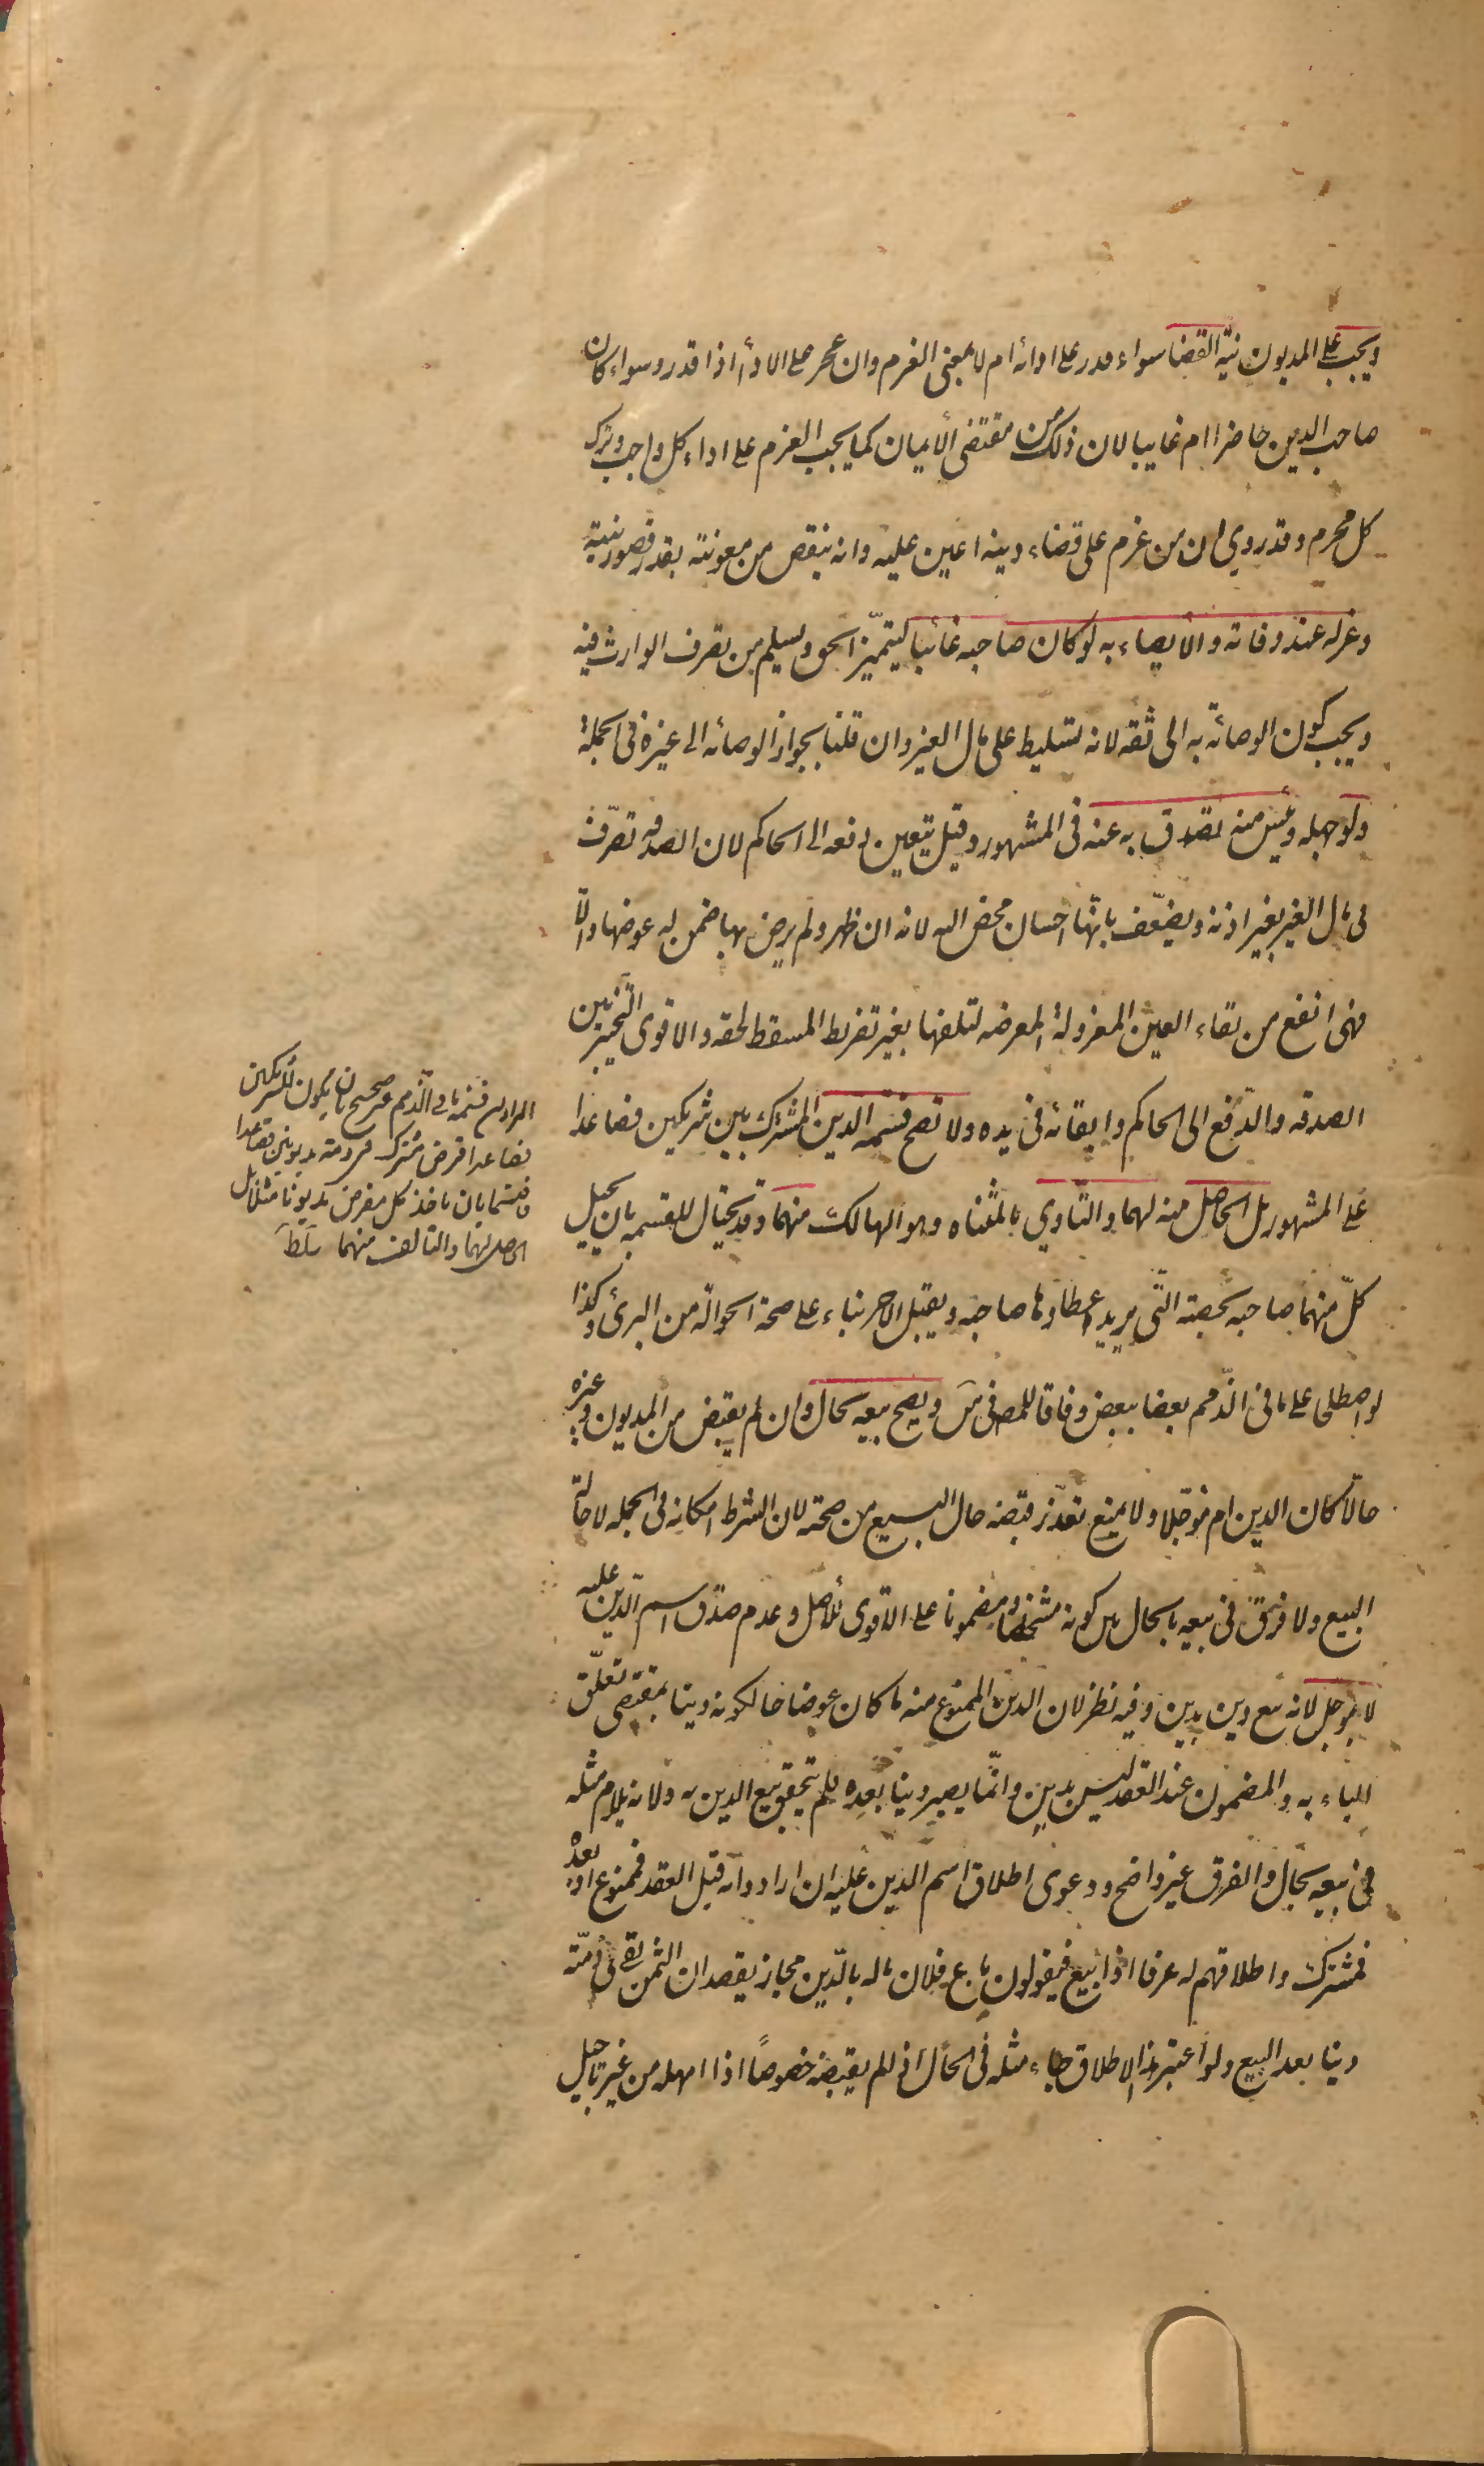 ويجب على المديون نية القضا سواء قدر على ادائه ام لا بمعنى العزم وان عجز على الاداء اذا قدر وسواء كان
صاحب الدين حاضرا ام غايبا لان ذلك من مقتضى الأيمان كما يجب العزم على اداء كل واجب وترك
كل محرم وقد روي ان من عزم على قضاء دينه اعين عليه وانه ينقص من معونته بقدر قصور نيته
وعزله عند وفاته والأيصاء به لو كان صاحبه غائبا ليتميّز الحق ويسلم من تصرف الوارث فيه
ويجب كون الوصائة به الى ثقه لانه تسليط على مال الغير وان قلنا بجواز الوصائه الى غيره فى الجملة
ولو جهله ويئس منه تصدق به عنه فى المشهور وقيل يتعين دفعه الى الحاكم لان الصدقه تصرّف
فى مال الغير بغير اذنه ويضعّف بانّها احسان محض اليه لانه ان ظهر ولم يرض بها ضمن له عوضها والّا
فهى انفع من بقاء العين المعزولة المعرضه لتلفها بغير تفريط المسقط لحقه والاقوى التّخيير بين
الصدقه والدّفع الى الحاكم وابقائه فى يده ولا تصح قسمه الدين المشترك بين شريكين فصاعدا
على المشهور بل الحاصل منه لهما والتّاوي بالمثناه وهو الهالك منهما وقد يحتال للقسمه بان يحيل
كلّ منهما صاحبه بحصته الّتى يريد اعطاؤها صاحبه ويقبل الاخر بناء على صحة الحوالة من البرئ وكذا
لو اصطلحا على ما فى الذّمم بعضا ببعض وفاقا للمص فى س ويصح بيعه بحال وان لم يقبض من المديون وغيره
حالّا كان الدين ام مؤجّلا ولا يمنع تعذّر قبضه حال البيع من صحته لان الشرط امكانه فى الجمله لا حالة
البيع ولا فرق فى بيعه بالحال بين كونه مشخصا ومضمونا على الاقوى للأصل وعدم صدق اسم الدّين عليه
لا بمؤجل لانه بيع دين بدين وفيه نظر لان الدين الممنوع منه ما كان عوضا حال كونه دينا بمقتضى تعلّق
الباء به والمضمون عند العقد ليس بدين وانّما يصير دينا بعده فلم يتحقق بيع الدين به ولانه يلزم مثله
فى بيعه بحال والفرق غير واضح ودعوى اطلاق اسم الدين عليه ان اراد وانه قبل العقد فممنوع او بعده
فمشترك واطلاقهم له عرفا اذا بيع فيقولون باع فلان ماله بالدّين مجاز يقصد ان الثمن بقى فى ذمّته
دينا بعد البيع ولو اعتبر هذا الاطلاق جاء مثله فى الحال اذا لم يقبضه خصوصًا اذا امهله من غير تاجيل
المراد ان قسمة ما فى الذّمم غير صحيح بان يكون لشريكين
فصاعدا قرض مشترك فى ذمة مديونين فصاعدا
فاقتسما بان ياخذ كل مقرض مديونا مثلا بل
الحاصل لهما والتالف منهما